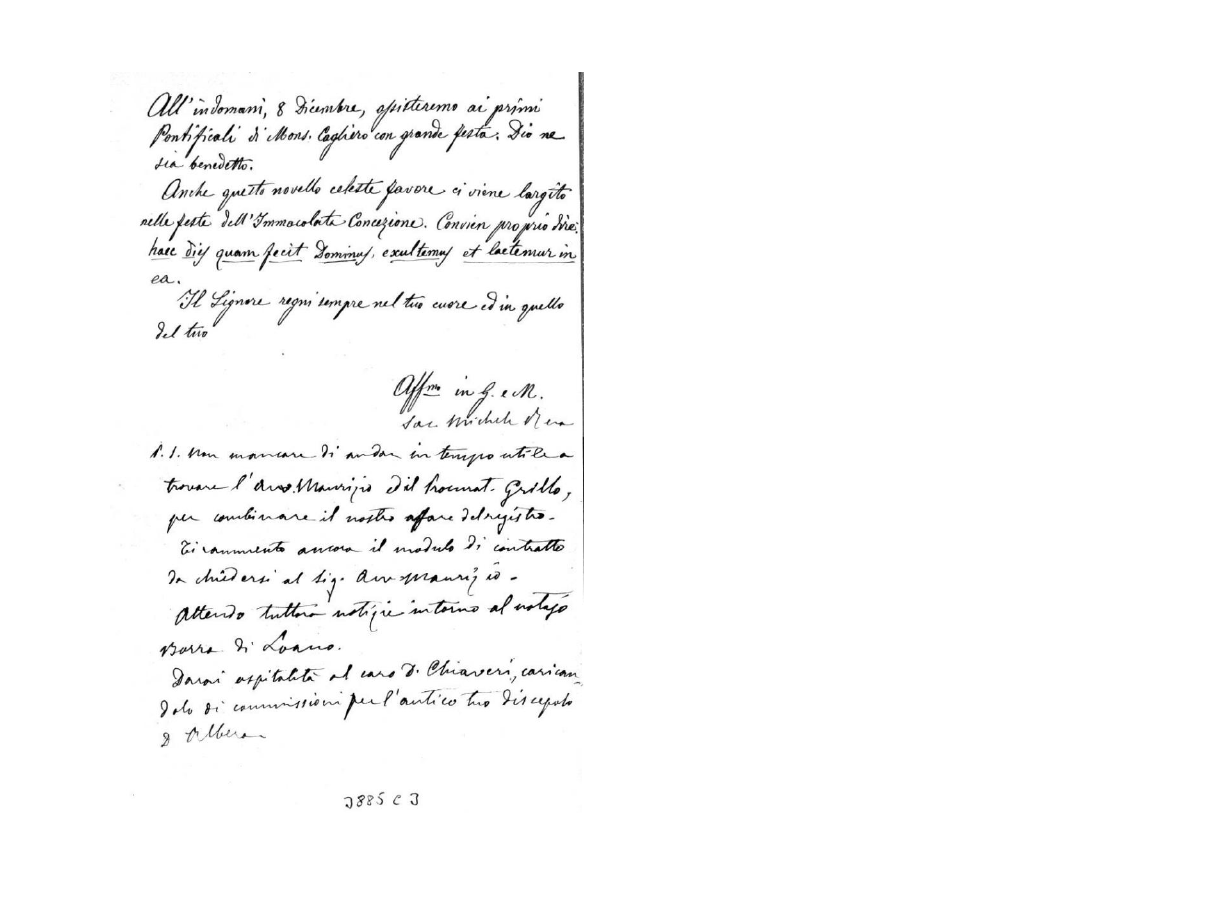 All'indomani, 8 Dicembre, assisteremo ai primi
Pontificali di Mons. Cagliero con grande festa. Dio ne
sia benedetto.
Anche questo novello celeste favore ci viene largito
nelle feste dell'Immacolata Concezione. Convien proprio dire:
haec dies quam fecit Dominus, exultemus et laetemur in
ea.
Il Signore regni sempre nel tuo cuore ed in quello
del tuo
Affmo in G. e M.
Sac Michele Rua
P. S. Non mancare di andar in tempo utile a
trovare l'Avv. Maurizio ed il Procurat. Grillo,
per combinare il nostro affare del registro.
Ti rammento ancora il modulo di contratto
da chiedersi al Sig. Avv Maurizio.
Attendo tuttora notizie intorno al notajo
Borra di Loano.
Darai ospitalità al caro D. Chiaveri, carican
dolo di commissioni per l'antico tuo discepolo
D Albera
J885 C J